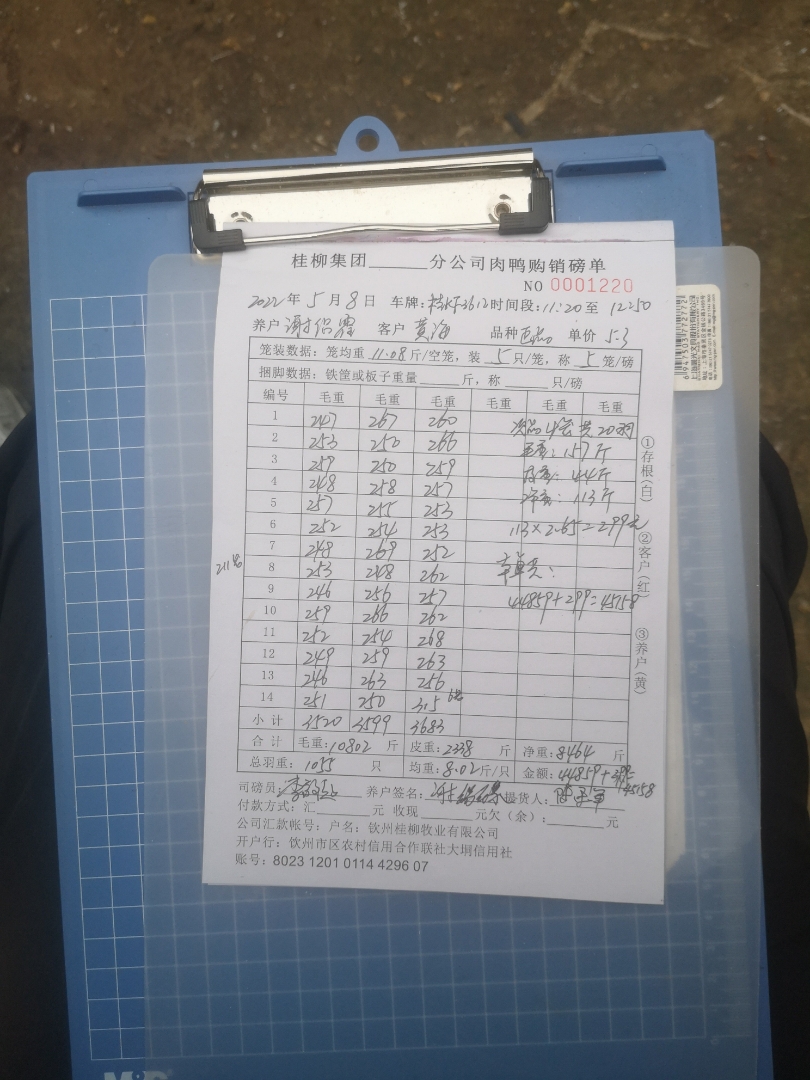 桂柳集团______分公司肉鸭购销磅单
NO 0001220
2022年5月8日 车牌: 3612时间段:11:20至12:50
养户 谢 客户 黄海 品种 单价 5.3
笼装数据:笼均重 11.08 斤/空笼,装 5 只/笼,称 5 笼/磅
捆脚数据:铁筐或板子重量______斤,称______只/磅
编号 毛重 毛重 毛重 毛重 毛重 毛重
1 247 267 260 次品4笼共20羽
2 253 250 266 毛重:157斤
3 259 250 259 皮重:44斤
4 248 258 257 净重:113斤
5 257 255 253
6 252 254 253 113×2.65=299元
7 248 269 252
211笼 8 253 248 262
9 246 256 257 44859+299=45158
10 259 266 262
11 252 254 268
12 249 259 263
13 246 263 256
14 251 250 315 6笼
小计 3520 3599 3683
合计 毛重:10802 斤 皮重:2338 斤 净重:8464 斤
总羽重: 1055 只 均重:8.02斤/只 金额:44859+299=
45158
司磅员: 养户签名: 提货人:
付款方式:汇______元 收现______元欠(余):______元
公司汇款帐号:户名:钦州桂柳牧业有限公司
开户行:钦州市区农村信用合作联社大垌信用社
账号:8023 1201 0114 4296 07
①存根(白)
②客户(红)
③养户(黄)
6947503772772
M&G